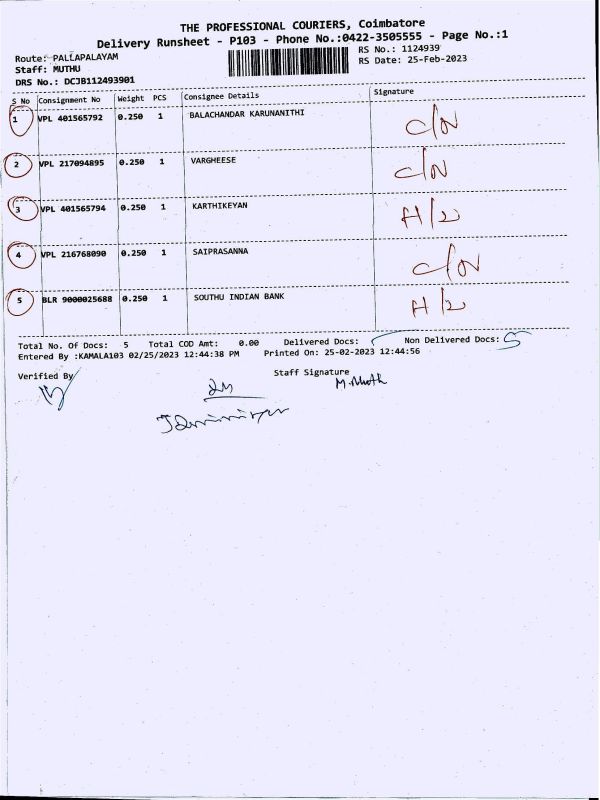 THE PROFESSIONAL COURIERS, Coimbatore
Delivery Runsheet - P103 - Phone No.:0422-3505555 - Page No.:1
Route: PALLAPALAYAM RS No.: 1124939
Staff: MUTHU RS Date: 25-Feb-2023
DRS No.: DCJB112493901
S No Consignment No Weight PCS Consignee Details Signature
1 VPL 401565792 0.250 1 BALACHANDAR KARUNANITHI C/N
2 VPL 217094895 0.250 1 VARGHEESE C/N
3 VPL 401565794 0.250 1 KARTHIKEYAN
4 VPL 216768090 0.250 1 SAIPRASANNA C/N
5 BLR 9000025688 0.250 1 SOUTHU INDIAN BANK
Total No. Of Docs: 5 Total COD Amt: 0.00 Delivered Docs: Non Delivered Docs: 5
Entered By :KAMALA103 02/25/2023 12:44:38 PM Printed On: 25-02-2023 12:44:56
Verified By Staff Signature
M.Muth